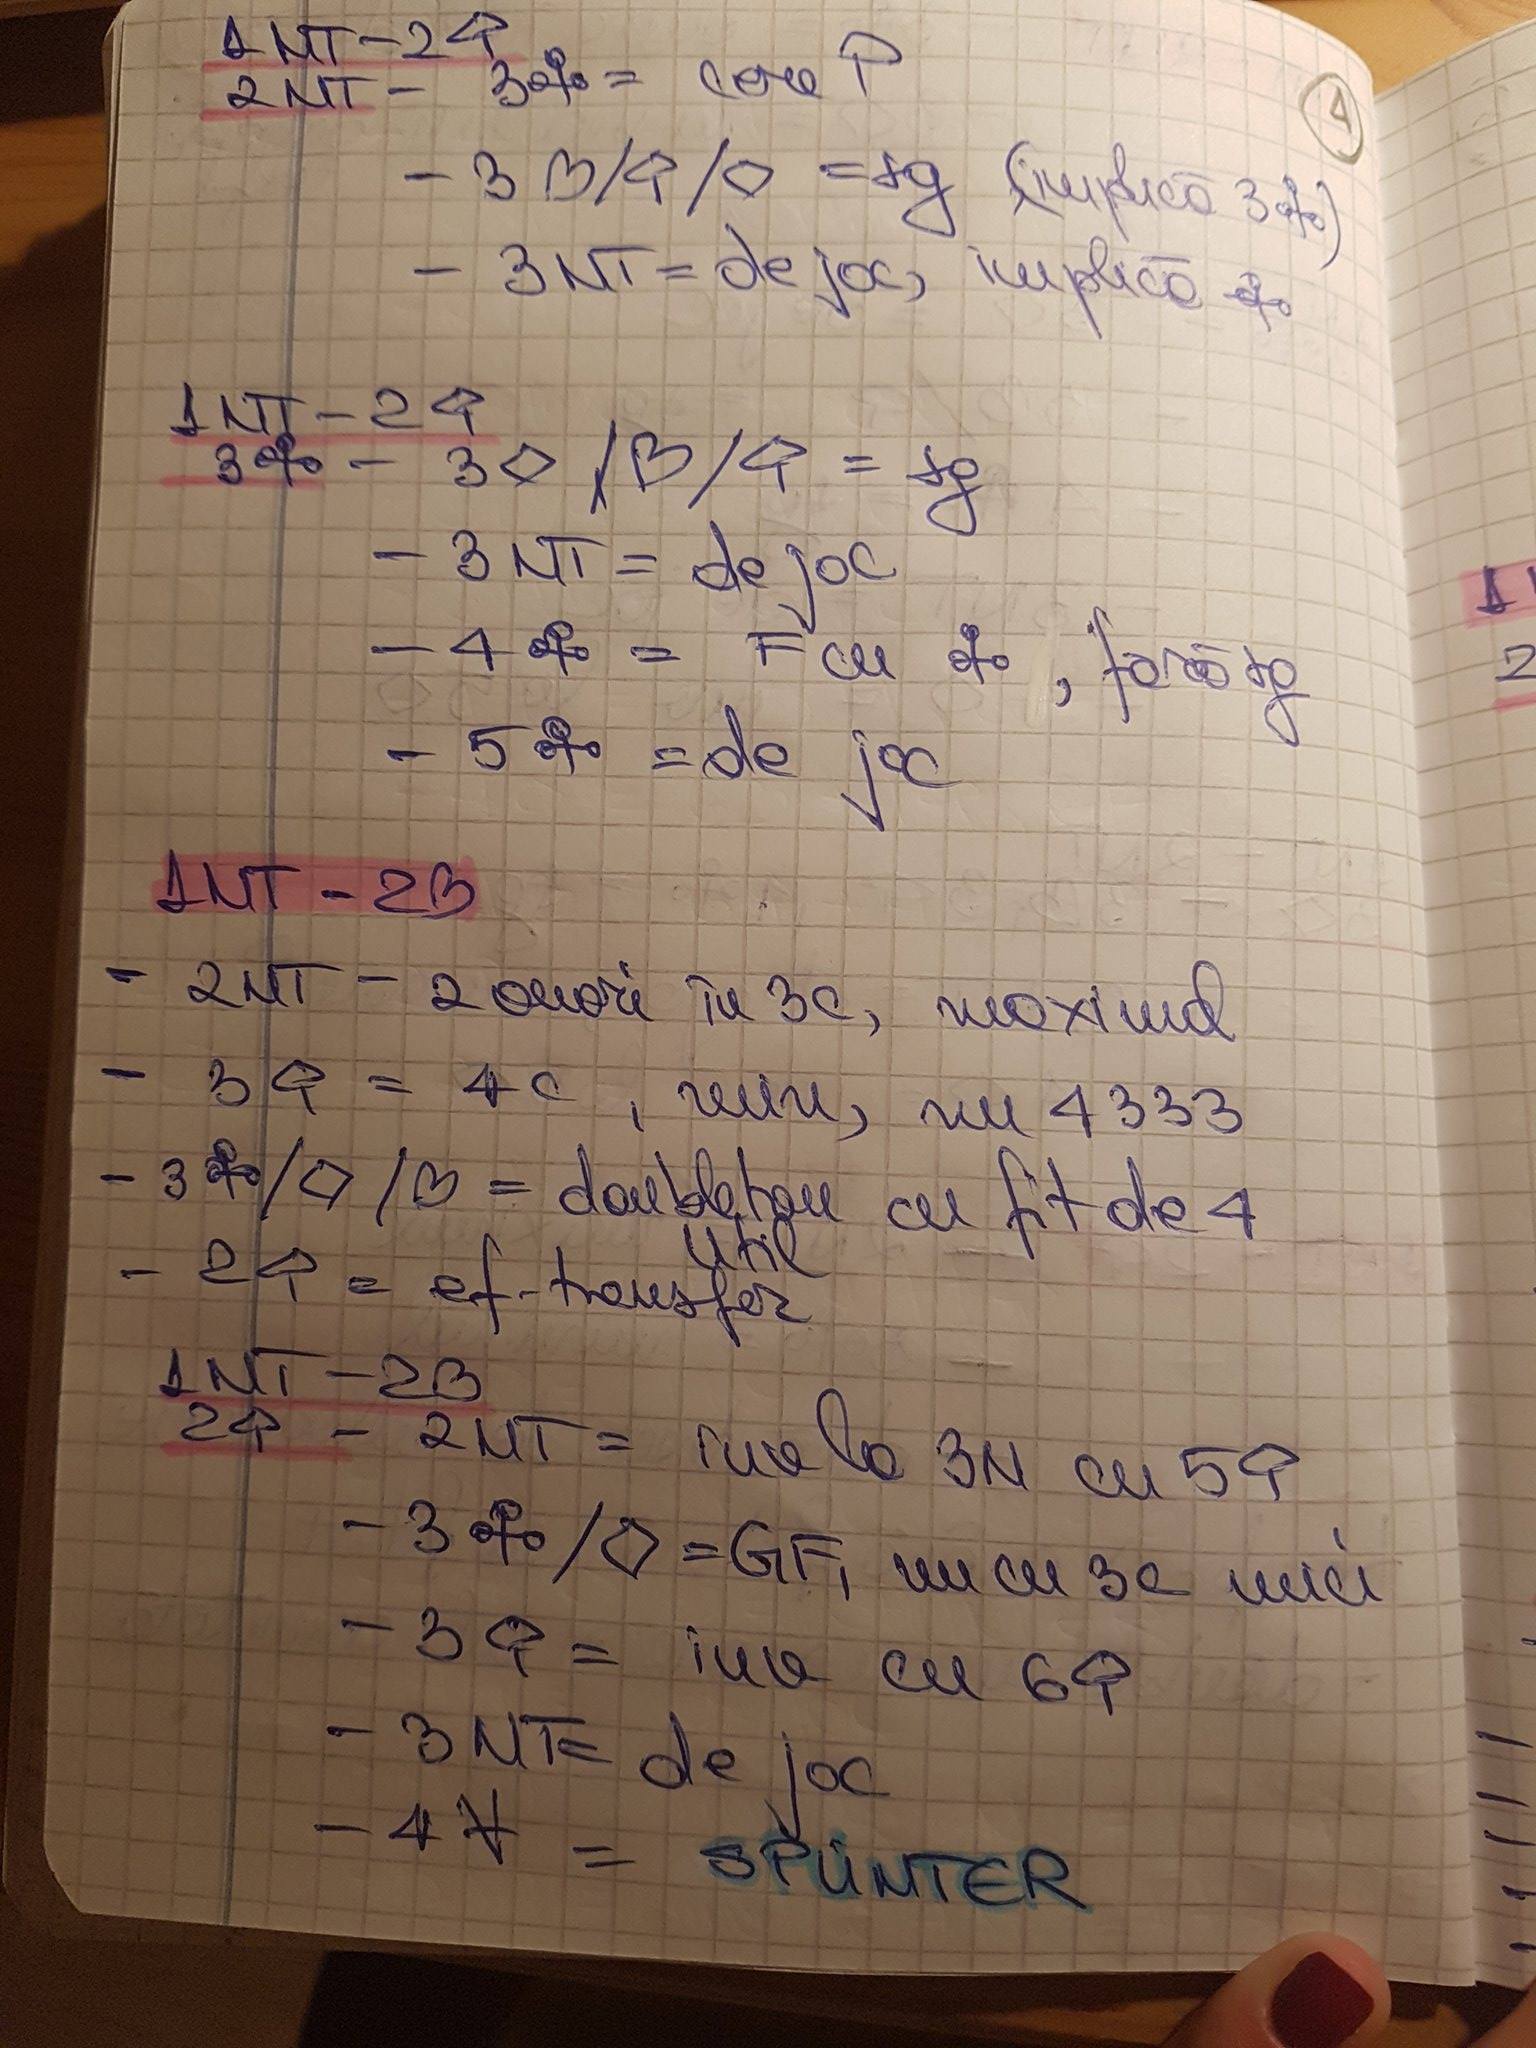 1NT-2♠
2NT - 3♣ = cere P
4
- 3♥/♠/♦ = sg (implică 3♣)
- 3NT = de joc, implică ♣
1NT-2♠
3♣ - 3♦/♥/♠ = sg
- 3NT = de joc
- 4♣ = F cu ♣, fără sg
- 5♣ = de joc
1NT-2♥
- 2NT - 2 onori în 3c, maximă
- 3♠ = 4c, min, nu 4333
- 3♣/♦/♥ = doubleton cu fit de 4
util
- 2♠ = ef. transfer
1NT-2♥
2♠ - 2NT = inv la 3N cu 5♠
- 3♣/♦ = GF, nu cu 3c mici
- 3♠ = inv cu 6♠
- 3NT = de joc
- 4 = SPLINTER
1
2